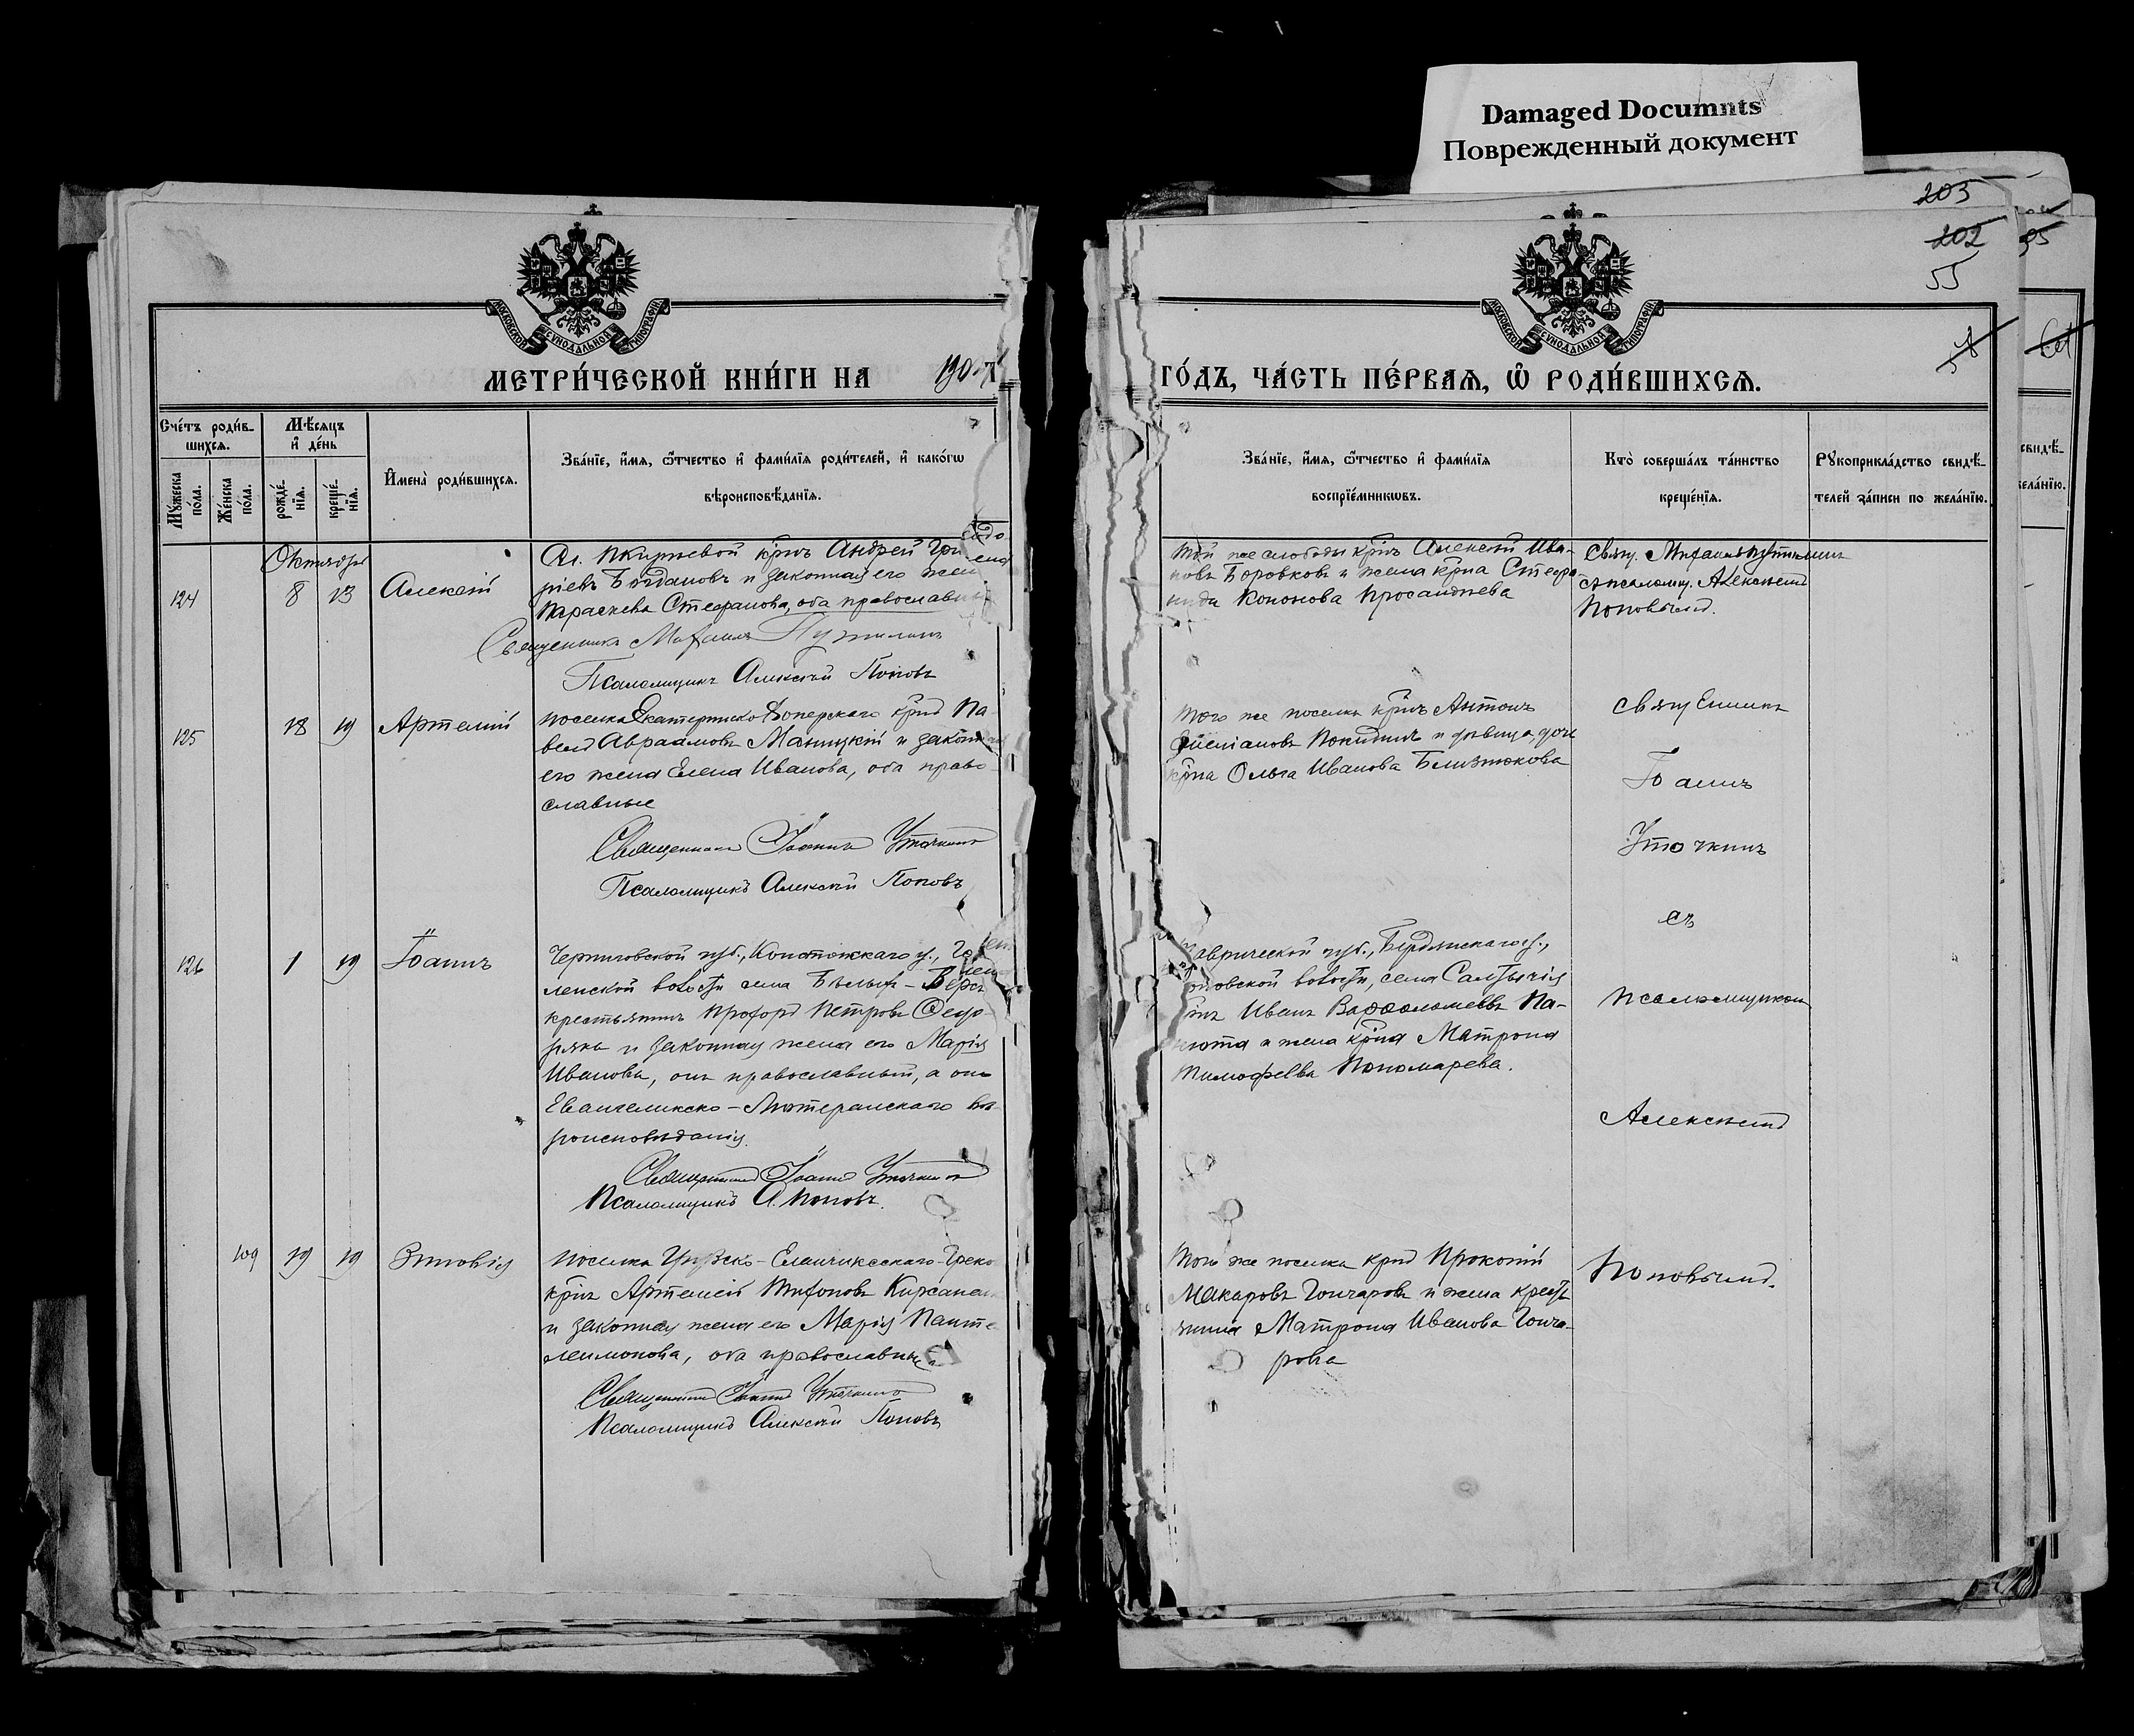 Damaged Documnts
Поврежденный документ
203
202
55
МОСКОВСКОЙ СѴНОДАЛЬНОЙ ТИПОГРАФІИ
МОСКОВСКОЙ СѴНОДАЛЬНОЙ ТИПОГРАФІИ
МЕТРИ́ЧЕСКОЙ КНИ́ГИ НА 190
ГО́ДЪ, ЧА́СТЬ ПЕ́РВАЯ, Ѡ РОДИ́ВШИХСЯ.
Сче́тъ роди́в-
шихся.
Мꙋ́жеска по́ла.
Же́нска по́ла.
Мѣ́сяцъ
и҆ де́нь
рожде́нїя.
креще́нїя.
И҆мена̀ роди́вшихся.
Зва́нїе, и҆́мя, ѻ҆́тчество и҆ фами́лїя роди́телей, и҆ како́гѡ
вѣроисповѣ́данїя.
Зва́нїе, и҆́мя, ѻ҆́тчество и҆ фами́лїя
воспрїе́мникѡвъ.
Кто̀ соверша́лъ та́инство
креще́нїя.
Рꙋкоприкла́дство свидѣ́-
телей за́писи по жела́нїю.
Октября
124
8
13
Алексій
Сл. крнъ Андрей
ріевъ Богдановъ и законная его жена
Параскева Стефанова, оба православные
Священникъ Михаилъ
Псаломщикъ Алексѣй Поповъ
Той же слободы крнъ Алексѣй Ива-
новъ Боровковъ и жена крна Стефа-
нида Кононова
Свящ. Михаилъ
съ псаломщ. Алексѣемъ
Поповымъ.
125
18
19
Артемій
поселка Екатерино-Хоперскаго крнъ Па-
велъ Авраамовъ Маницкій и законная
его жена Елена Иванова, оба право-
славные
Священникъ Іоаннъ Уточкинъ
Псаломщикъ Алексѣй Поповъ
Того же поселка крнъ Антонъ
и дѣвица, дочь
крна Ольга Иванова Близнюкова
Священникъ
Іоаннъ
Уточкинъ
съ
126
1
19
Іоаннъ
Черниговской губ., Конотопскаго у.,
ленской волости села Бѣлыхъ-
крестьянинъ Прохоръ Петровъ
и законная жена его Марія
Иванова, онъ православный, а она
Евангелическо-Лютеранскаго вѣ-
роисповѣданія.
Священникъ Іоаннъ Уточкинъ
Псаломщикъ А. Поповъ.
Таврической губ., Бердянскаго у.,
волости, села Салтычія
Иванъ Варѳоломеевъ Па-
и жена крна Матрона
Тимофеева Пономарева.
псаломщикомъ
Алексѣемъ
109
19
19
Зиновія
поселка Грузско-Еланчикскаго-Греко
крнъ Артемій Тихоновъ
и законная жена его Марія Панте-
леимонова, оба православные
Священникъ Іоаннъ Уточкинъ
Псаломщикъ Алексѣй Поповъ
Того же поселка крнъ Прокопій
Макаровъ Гончаровъ и жена кресть-
янина Матрона Иванова Гонча-
рова
Поповымъ.